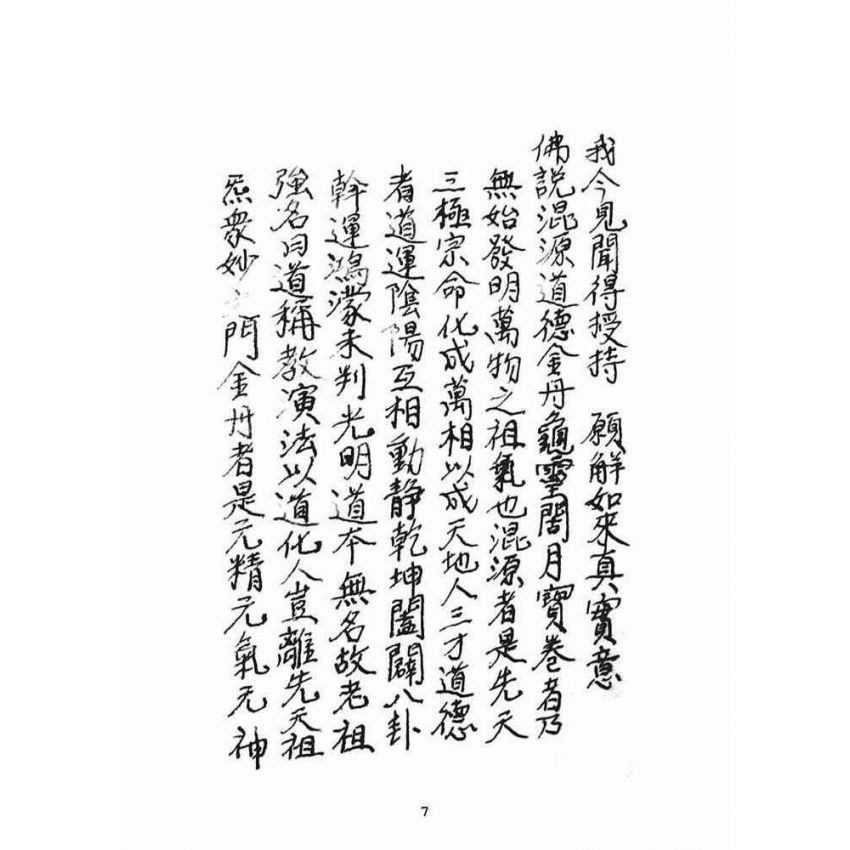 我今見聞得授持　願解如來真實意
佛說混源道德金丹龜靈閏月寶卷者乃
無始發明萬物之祖氣也混源者是先天
三極宗命化成萬相以成天地人三才道德
者道運陰陽互相動靜乾坤闔闢八卦
幹運鴻濛未判光明道本無名故老祖
強名曰道稱教演法以道化人豈離先天祖
炁衆妙門金丹者是元精元氣元神
7